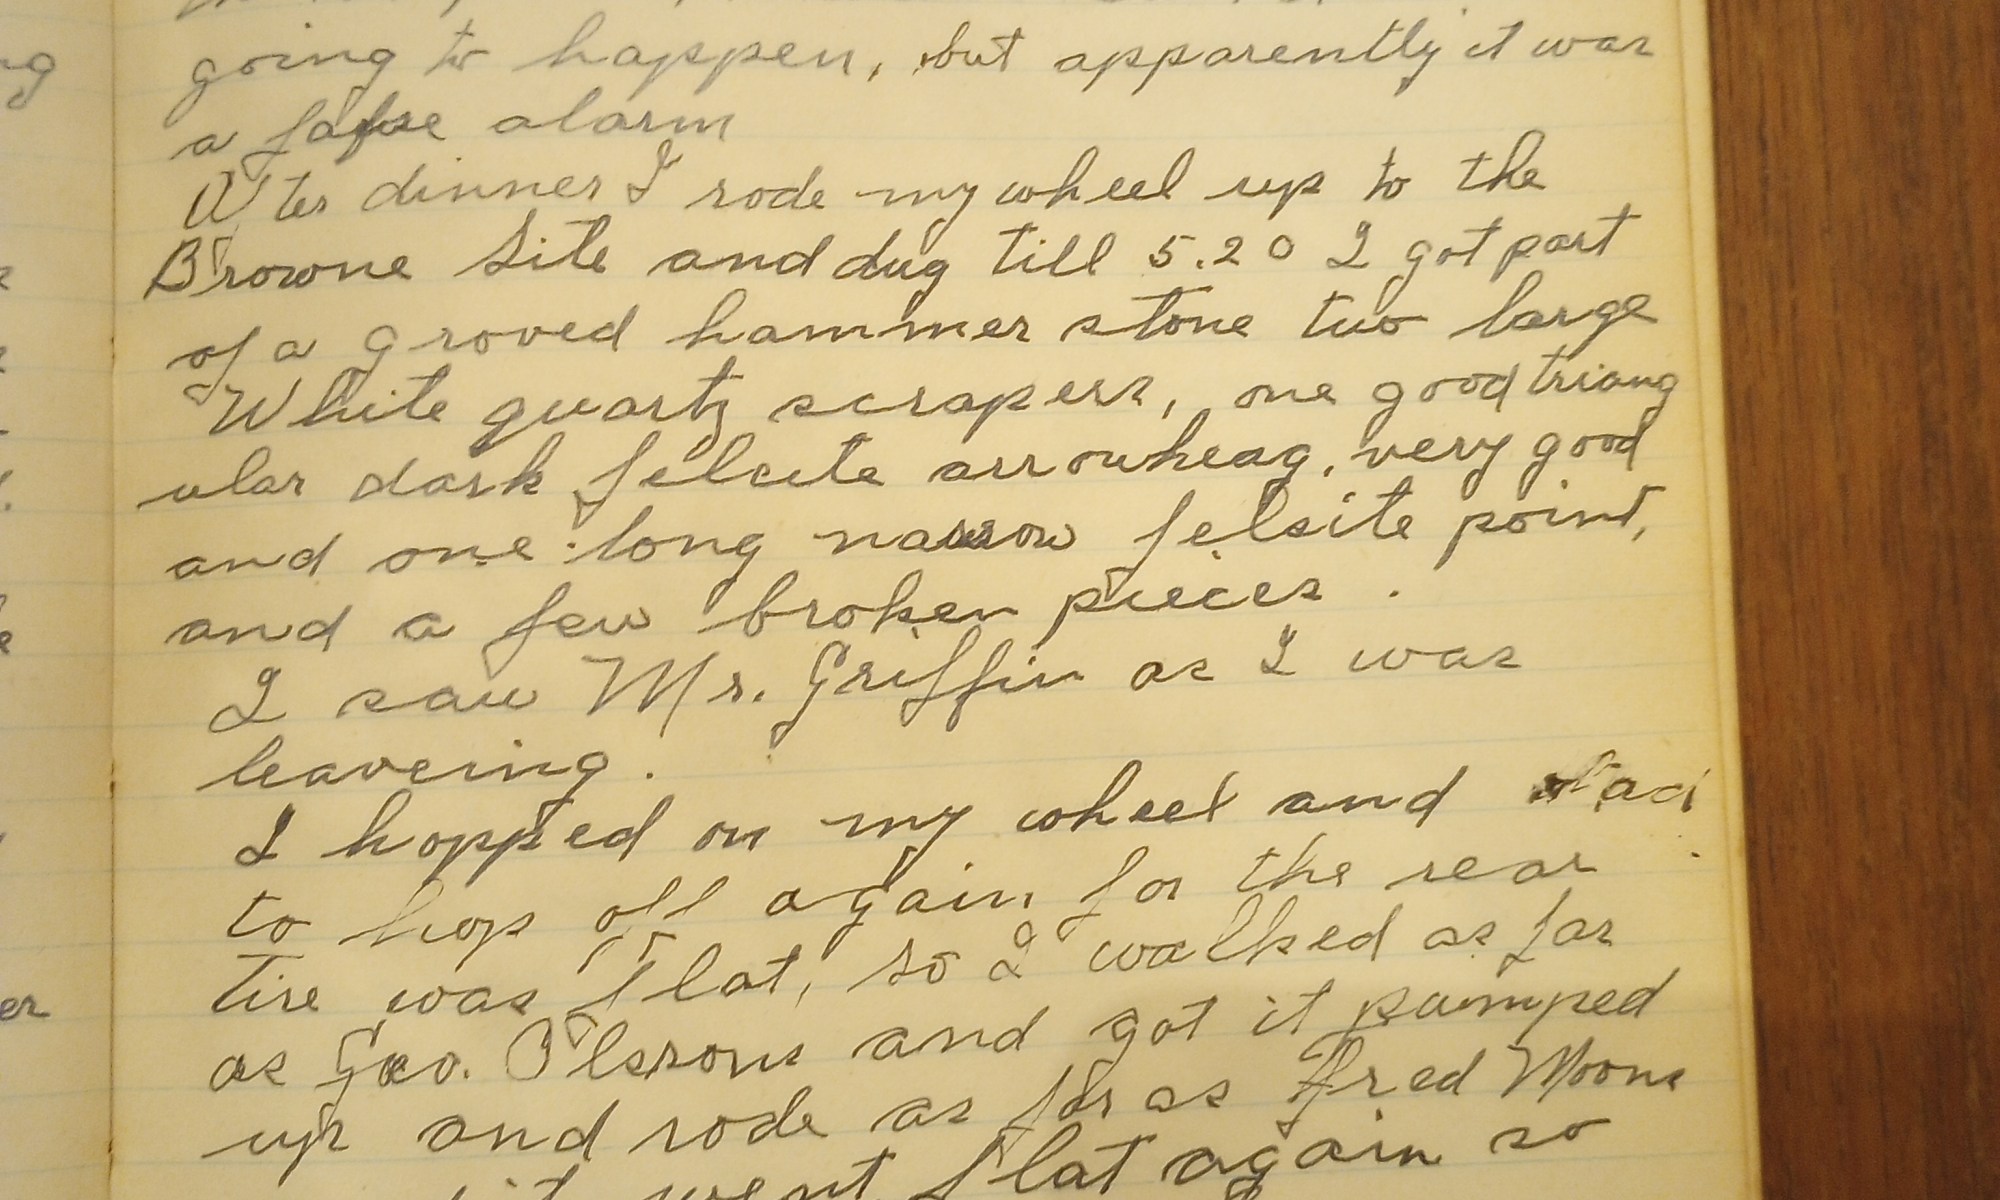 going to happen, but apparently it was
a false alarm
After dinner I rode my wheel up to the
Browne Site and dug till 5.20 I got part
of a groved hammer stone two large
White quartz scrapers, one good triang
ular dark felcite arrowheag, very good
and one long narrow felsite point,
and a few broken pieces.
I saw Mr. Griffin as I was
leavering.
I hopped on my wheel and had
to hop off again for the rear
Tire was flat, so I walked as far
as Geo. Olssons and got it pumped
up and rode as far as Fred Moons
it went flat again so
ng
er